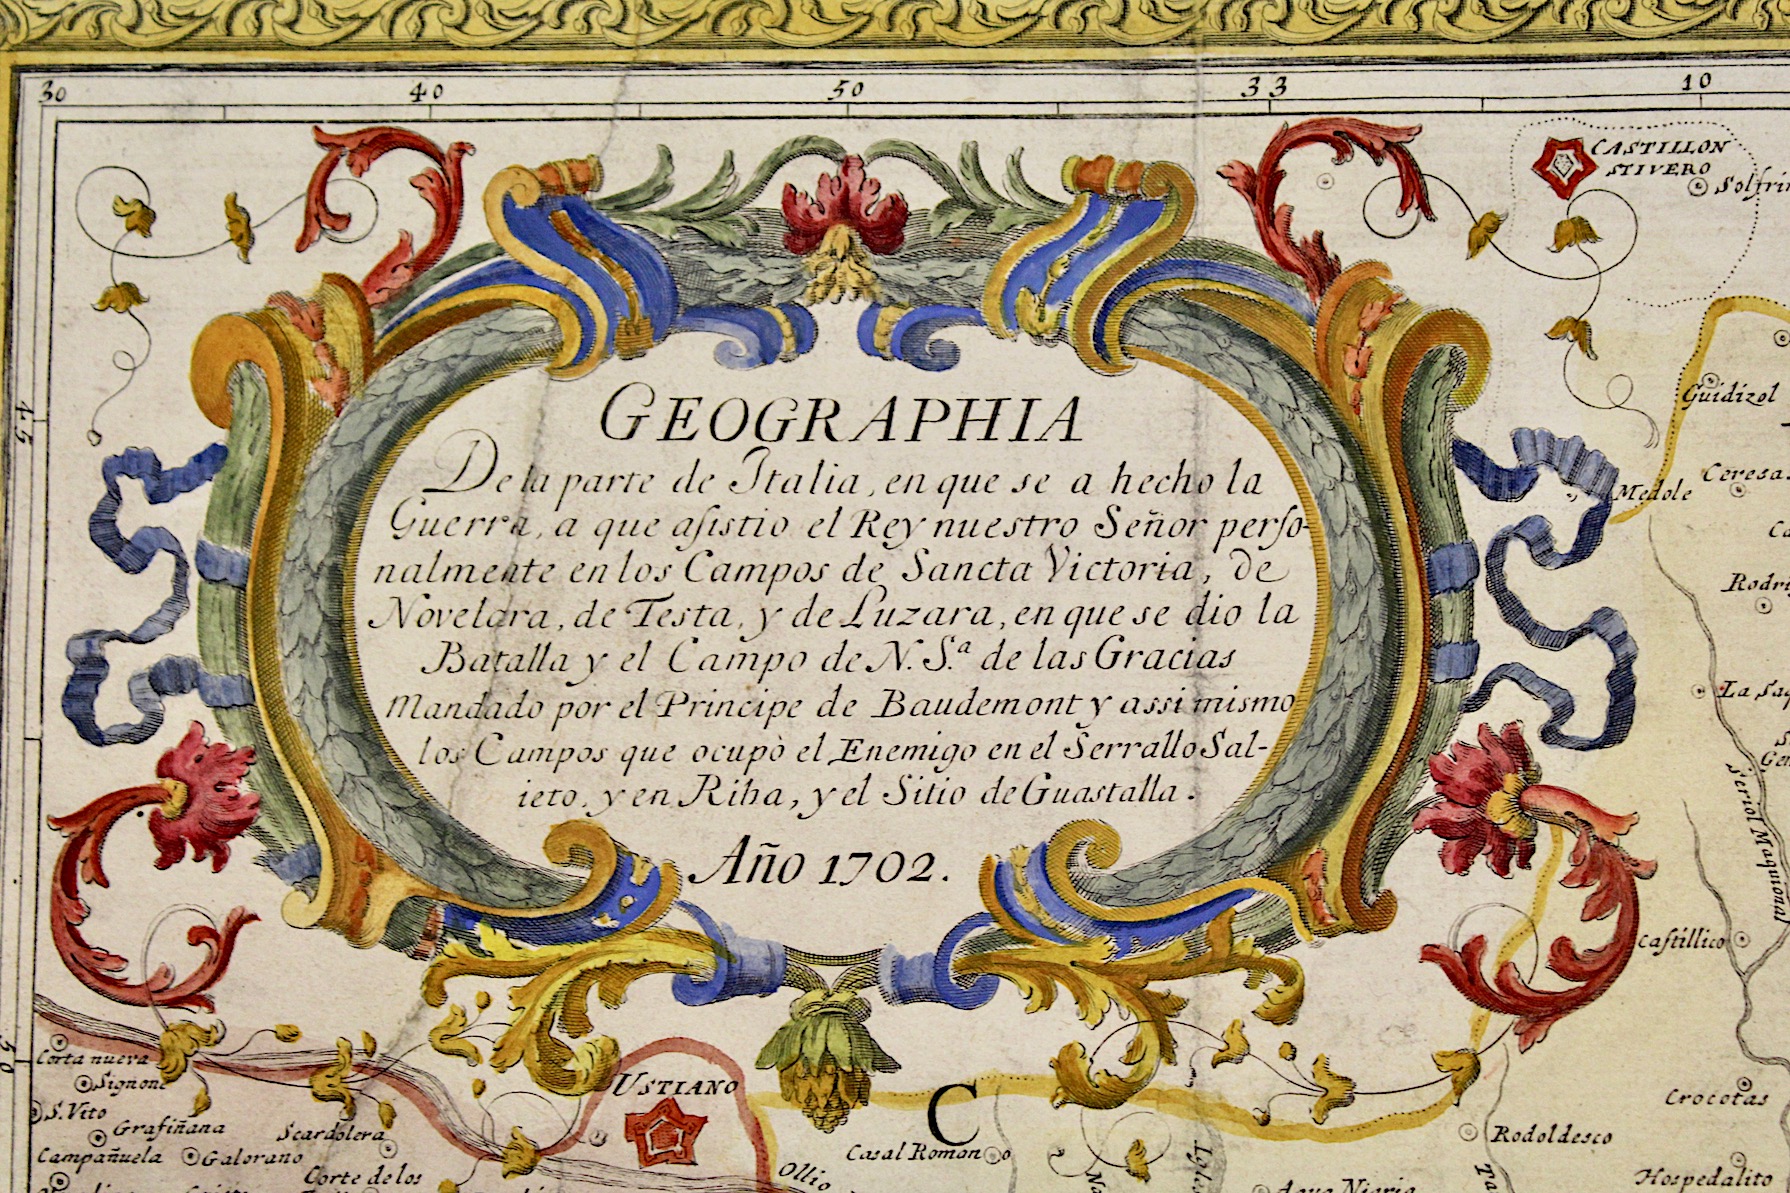 30 40 50 33 10
CASTILLON
STIVERO
Solfrin
45
Guidizol
GEOGRAPHIA
De la parte de Italia, en que se a hecho la
Guerra, a que aſistio el Rey nuestro Señor perſo-
nalmente en los Campos de Sancta Victoria, de
Novelara, de Testa, y de Luzara, en que se dio la
Batalla y el Campo de N. S.ª de las Gracias
Mandado por el Principe de Baudemont y assi mismo
los Campos que ocupò el Enemigo en el Serrallo Sal-
ieto, y en Riba, y el Sitio de Guastalla.
Año 1702.
Ceresa
Medole
Ca
Rodri
La Saq
S.
Gen
Seriol Maquional
Caſtillico
50
Corta nueva
Signone
S. Vito
Grafiñana
Scardolera
Campañuela
Galorano
Corte de los
USTIANO
C
Casal Romano
Ollio
Crocotas
Rodoldesco
Hospedalito
Aqua Nigria
Na
Ta